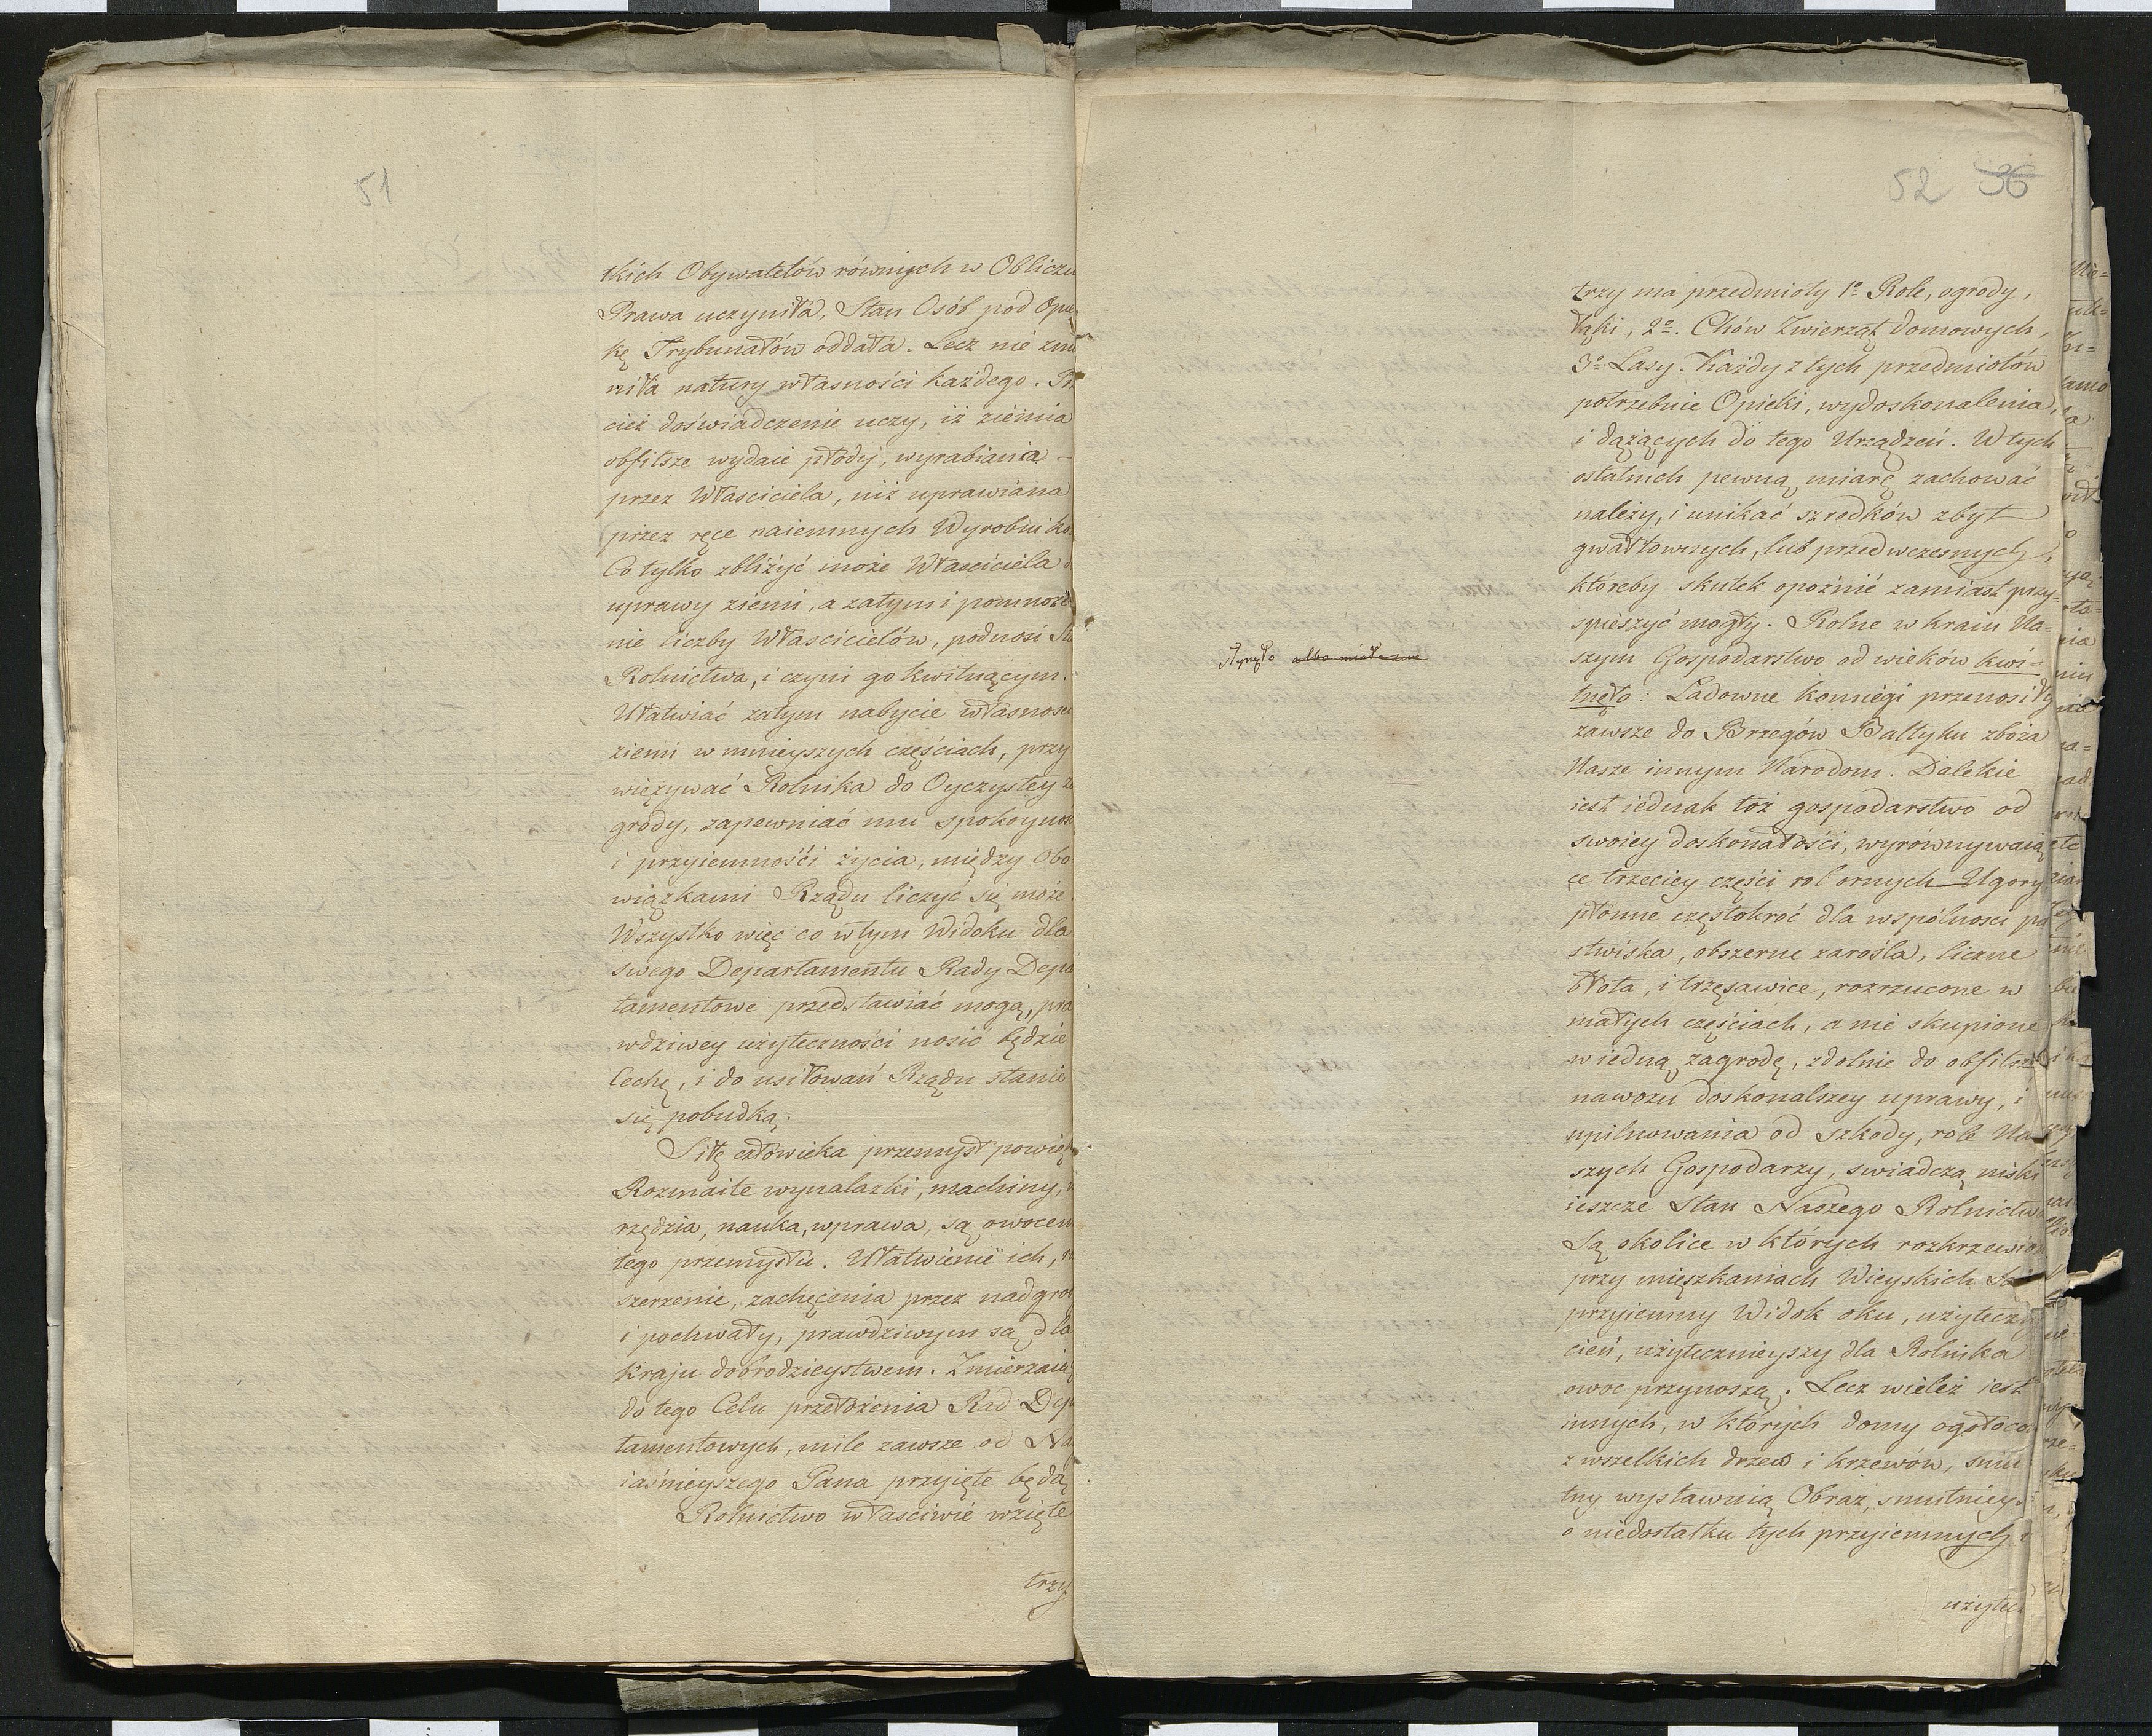 51
tkich Obywatelów równych w Obliczu
Prawa uczyniła, Stan Osób pod Opie
kę Trybunałów oddała. Lecz nie zmie
niła natury własności każdego.
cież doświadczenie uczy, iż ziemia
obfitsze wydaie płody, wyrabiania
przez Właściciela, niż uprawiana
przez ręce naiemnych Wyrobniko
Co tylko zbliżyć może Właściciela
uprawy ziemi, a zatym i pomnoże
nie liczby Właścicielów, podnosi
Rolnictwa, i czyni go kwitnącym.
Ułatwiać zatym nabycie własności
ziemi w mnieyszych częściach, przy
więzywać Rolnika do Oyczystey za
grody, zapewniać mu spokoynoś
i przyiemności życia, między Obo
wiązkami Rządu liczyć się może.
Wszystko więc co w tym Widoku dla
swego Departamentu Rady Depa
tamentowe przedstawiać mogą, pra
wdziwey użyteczności nosić będzie
Cechę, i do usiłowań Rządu stanie
się pobudką.
Siłę człowieka przemysł powię
Rozmaite wynalazki, machiny,
rzędzia, nauka, wprawa, są owocem
tego przemysłu. Ułatwienie ich,
szerzenie, zachęcenia przez nadgro
i pochwały, prawdziwym są dla
kraju dobrodzieystwem. Zmierzaią
do tego Celu przełożenia Rad Dep
tamentowych, mile zawsze od Na
iaśnieyszego Pana przyięte będą
Rolnictwo właściwie wzięte
trzy
52 36
trzy ma przedmioty 1o Role, ogrody,
łąki, 2o. Chów Zwierząt domowych,
3o Lasy. Każdy z tych przedmiotów
potrzebuie Opieki, wydoskonalenia,
i dążących do tego Urządzeń. W tych
ostatnich pewną miarę zachować
należy, i unikać szrodków zbyt
gwałtownych, lub przedwczesnych,
któreby skutek opoźnić zamiast przy-
spieszyć mogły. Rolne w kraiu Na-
szym Gospodarstwo od wieków kwi-
słynęło albo miało
tnęło: Ladowne komiegi przenosiły
zawsze do Brzegów Baltyku zboża
Nasze innym Narodom. Dalekie
iest iednak toż gospodarstwo od
swoiey doskonałości, wyrównywaią
ce trzeciey części rol ornych Ugory
płonne częstokroć dla wspólności pa
stwiska, obszerne zarośla, liczne
błota, i trzęsawice, rozrzucone w
małych częściach, a nie skupione
w iedną zagrodę, zdolnie do obfitsze
nawozu doskonalszey uprawy, i
upilnowania od szkody, role Na
szych Gospodarzy, swiadczą niski
ieszcze Stan Naszego Rolnictw
Są okolice w których rozkrzewio
przy mięszkaniach Wieyskich
przyiemny Widok oku, użyteczn
cień, użytecznieyszy dla Rolnika
owoc przynoszą. Lecz wieleż iest
innych, w których domy ogołoco
z wszelkich drzew i krzewów, smu
tny wystawuią Obraz, smutniey
o niedostatku tych przyiemnych i
użytecz